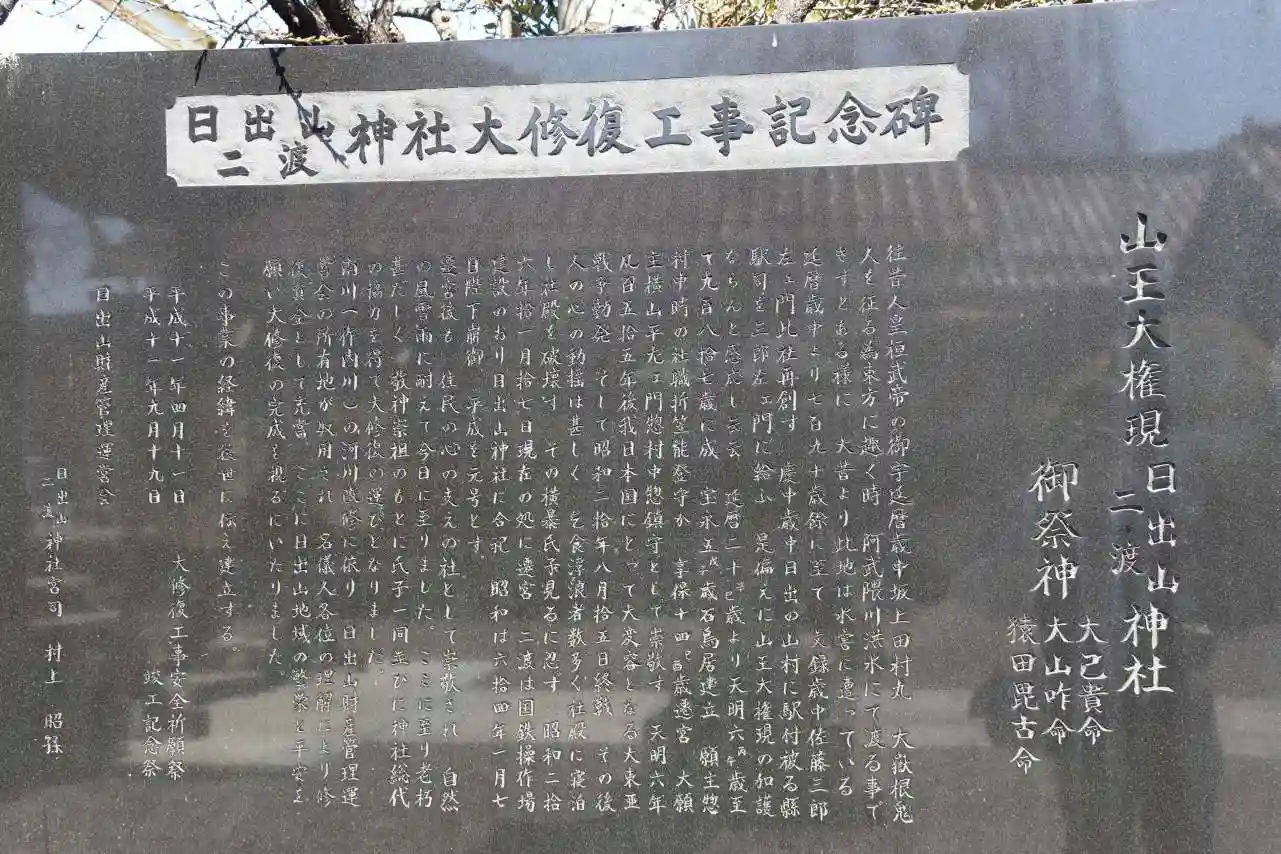 日出山二渡神社大修復工事記念碑
山王大権現日出山二渡神社
御祭神
大己貴命
大山咋命
猿田毘古命
往昔人皇桓武帝の御宇延暦歳中坂上田村丸 大嶽根鬼
人を征る為東方に趣く時 阿武隈川洪水にて渡る事で
きずとある様に 大昔より此地は水害に遭っている
延暦歳中より七百九十歳餘に至て 文録歳中佐藤三郎
左ェ門此社再創す 慶中歳中日出の山村に駅付被る縣
駅司を三郎左ェ門に給ふ 是偏えに山王大権現の加護
ならんと感応し云云 延暦二十 巳歳より天明六丙午歳至
て九百八拾七歳に成 宝永五戊歳石鳥居建立 願主惣
村中時の社職折笠能登守か 享保十四 酉歳遷宮 大願
主横山平九ェ門惣村中惣鎮守として崇敬す 天明六年
凡百五拾五年後我日本国にとって大変容となる大東亜
戦争勃発 そして昭和二拾年八月拾五日終戦 その後
人の心の動揺は甚しく 乞食浮浪者数多く社殿に寝泊
し社殿を破壊す その横暴氏子見るに忍ず 昭和二拾
六年拾一月拾七日現在の処に遷宮 二渡は国鉄操作場
建設のおり日出山神社に合祀 昭和は六拾四年一月七
日陛下崩御 平成を元号とす
遷宮後も 住民の心の支えの社として崇敬され 自然
の風雪雨に耐えて今日に至りました。ここに至り老朽
甚だしく 敬神崇祖のもとに氏子一同並びに神社総代
の協力を得て大修復の運びとなりました。
南川(一作内川)の河川改修に依り 日出山財産管理運
営会の所有地が収用され 名儀人各位の理解により修
復資金として充当 ここに日出山地域の繁栄と平安を
願い大修復の完成を視るにいたりました
この事業の経緯を後世に伝え建立する。
平成十一年四月十一日 大修復工事安全祈願祭
平成十一年九月十九日 竣工記念祭
日出山財産管理運営会
日出山二渡神社宮司 村上 昭